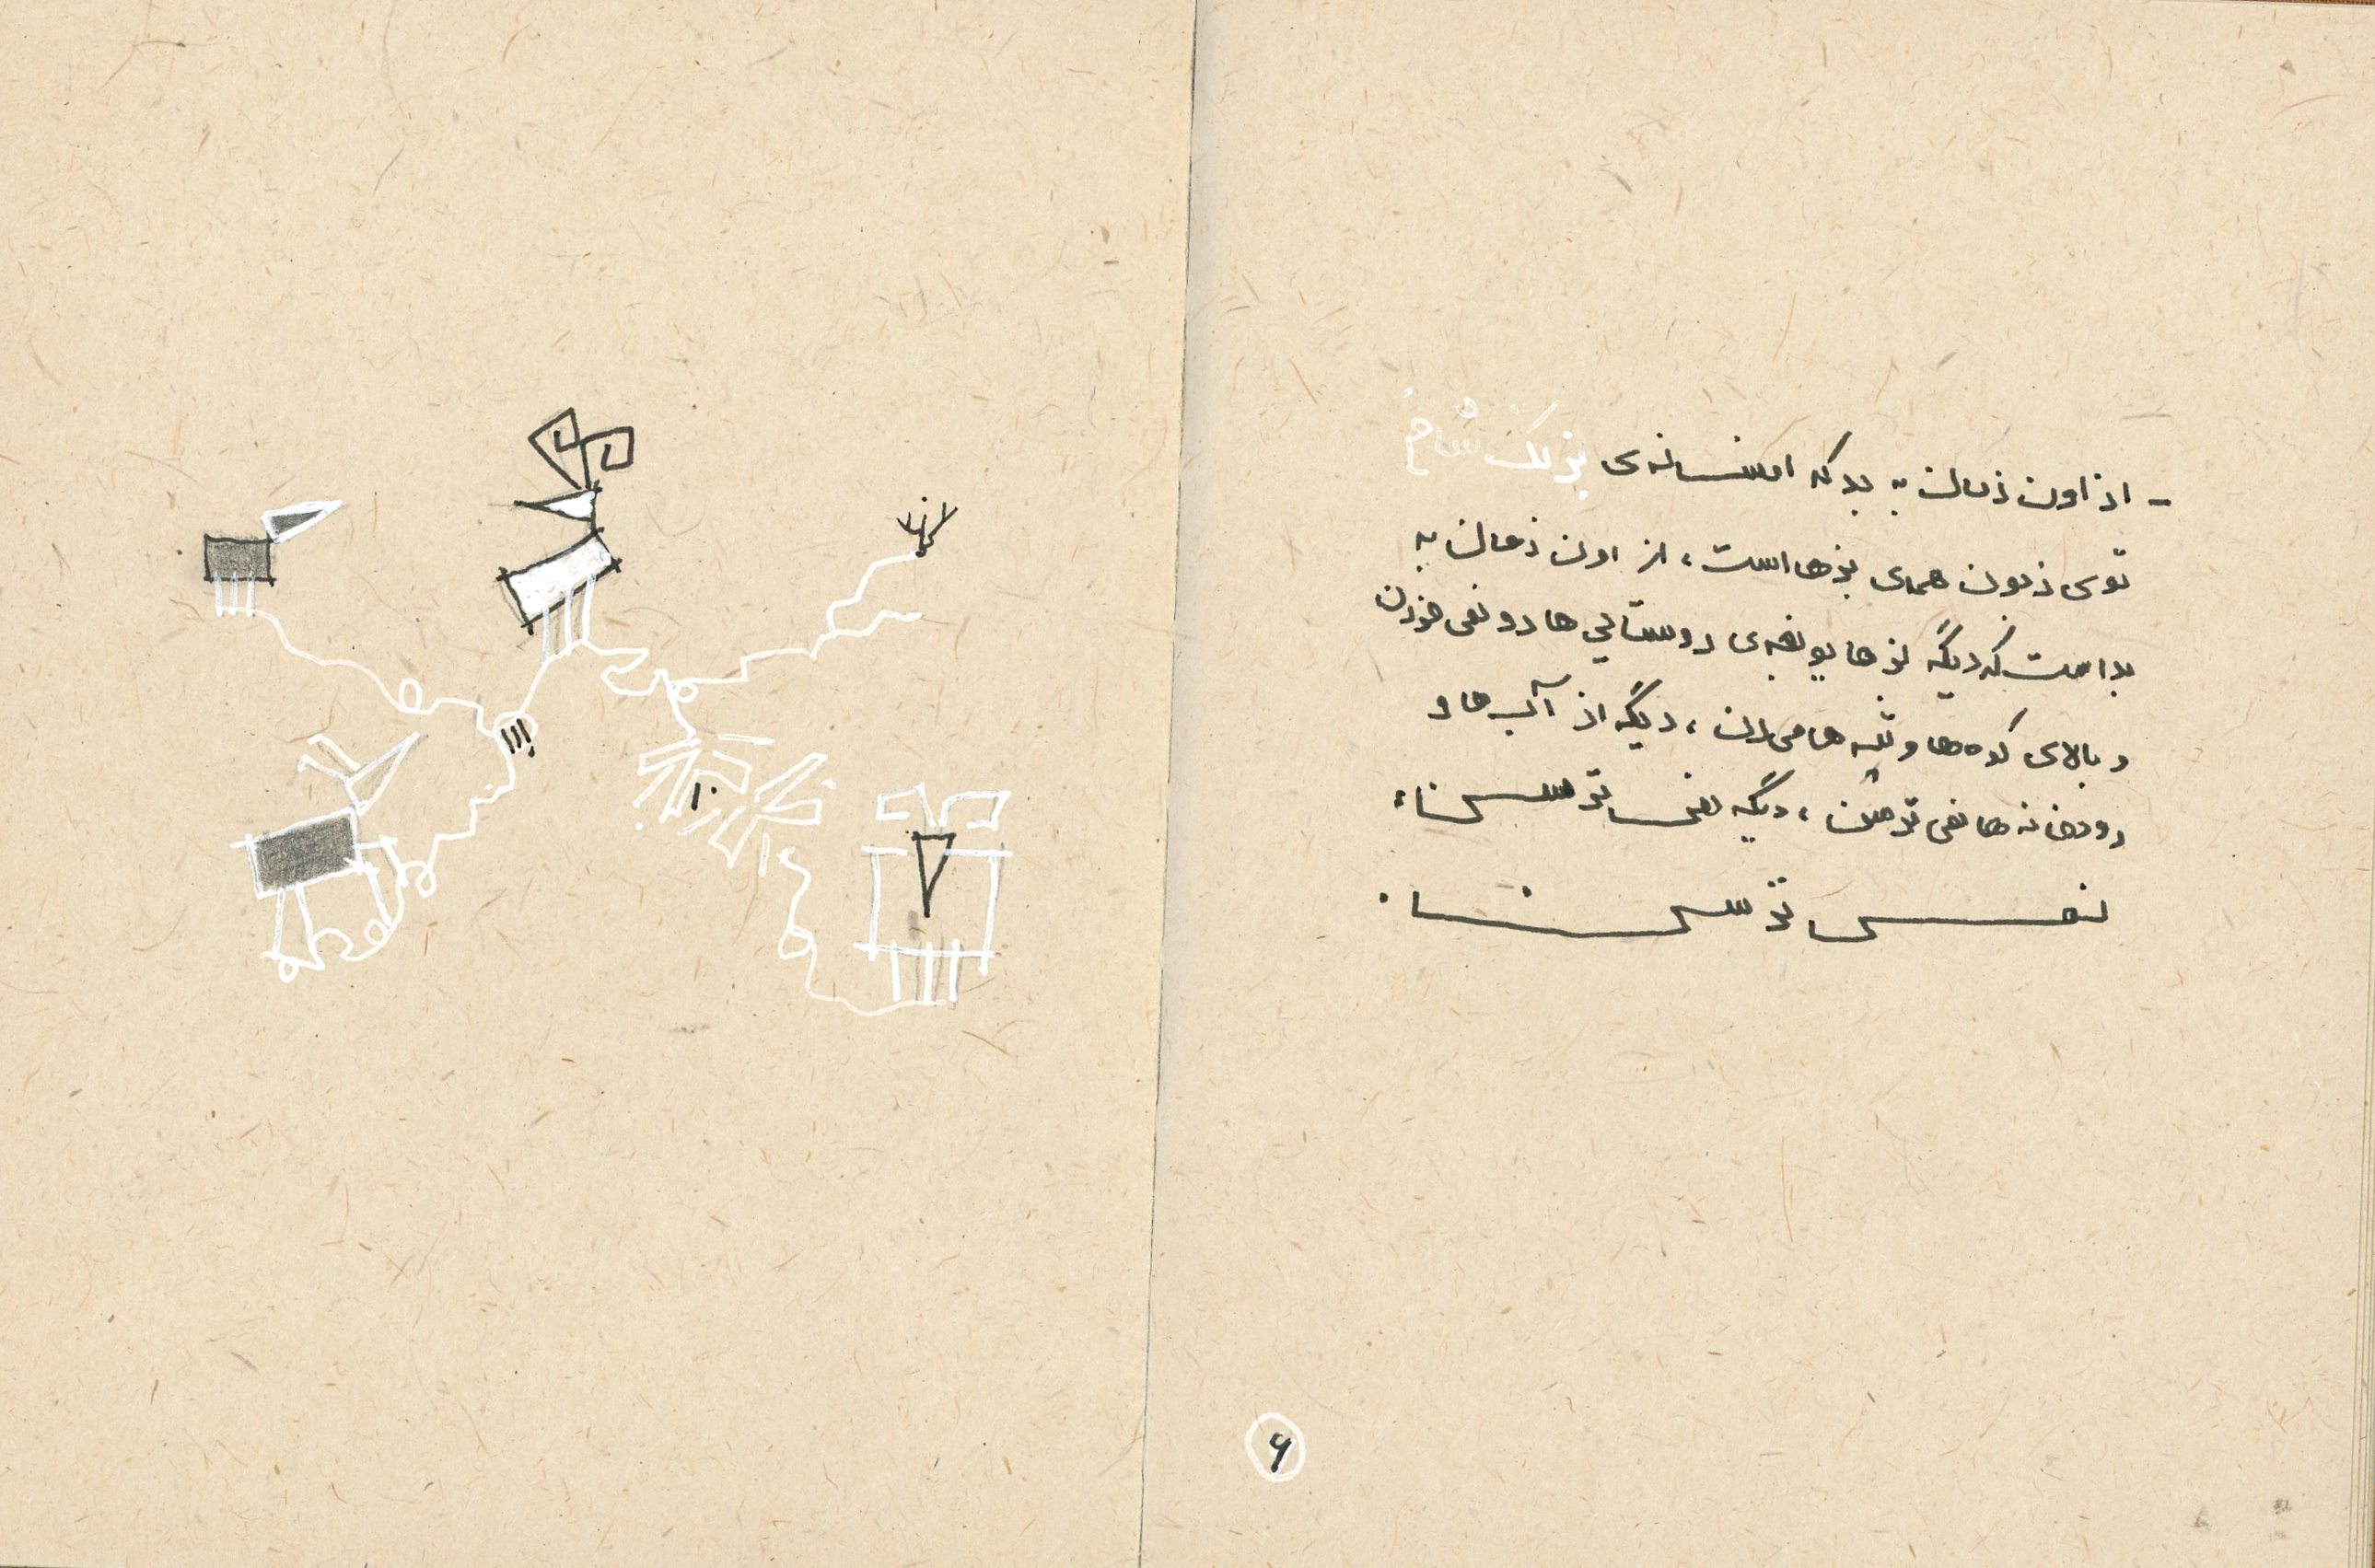 - از اون زمان به بعد که افسانه‌ی بزلک شاخ
توی زبون همه‌ی بزها است، از اون زمان به
بعد است که دیگه بزها یونجه‌ی روستایی‌ها رو نمی‌خورن
و بالای کوه‌ها و تپه‌ها می‌رن، دیگه از آب‌ها و
رودخانه‌ها نمی‌ترسن، دیگه نمی‌ترسنا،
نمی‌ترسنا.
۶